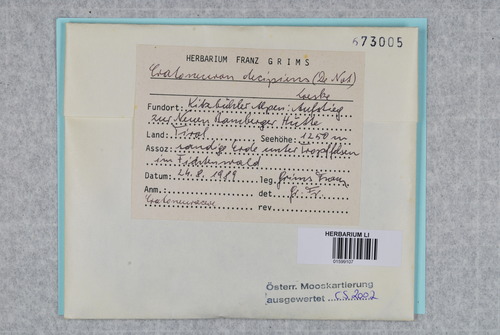 673005
HERBARIUM FRANZ GRIMS
Cratoneuron decipiens (De Not.)
Loeske
Fundort: Kitzbühler Alpen: Aufstieg
zur Neuen Bamberger Hütte
Land: Tirol Seehöhe: 1250 m
Assoz: sandige Erde unter Tropffelsen
im Fichtenwald
Datum: 24.8.1989 leg. Grims Franz
Anm. det. Gr. Fr.
Cratoneuraceae rev.
HERBARIUM LI
Österr. Mooskartierung
ausgewertet CS 2002